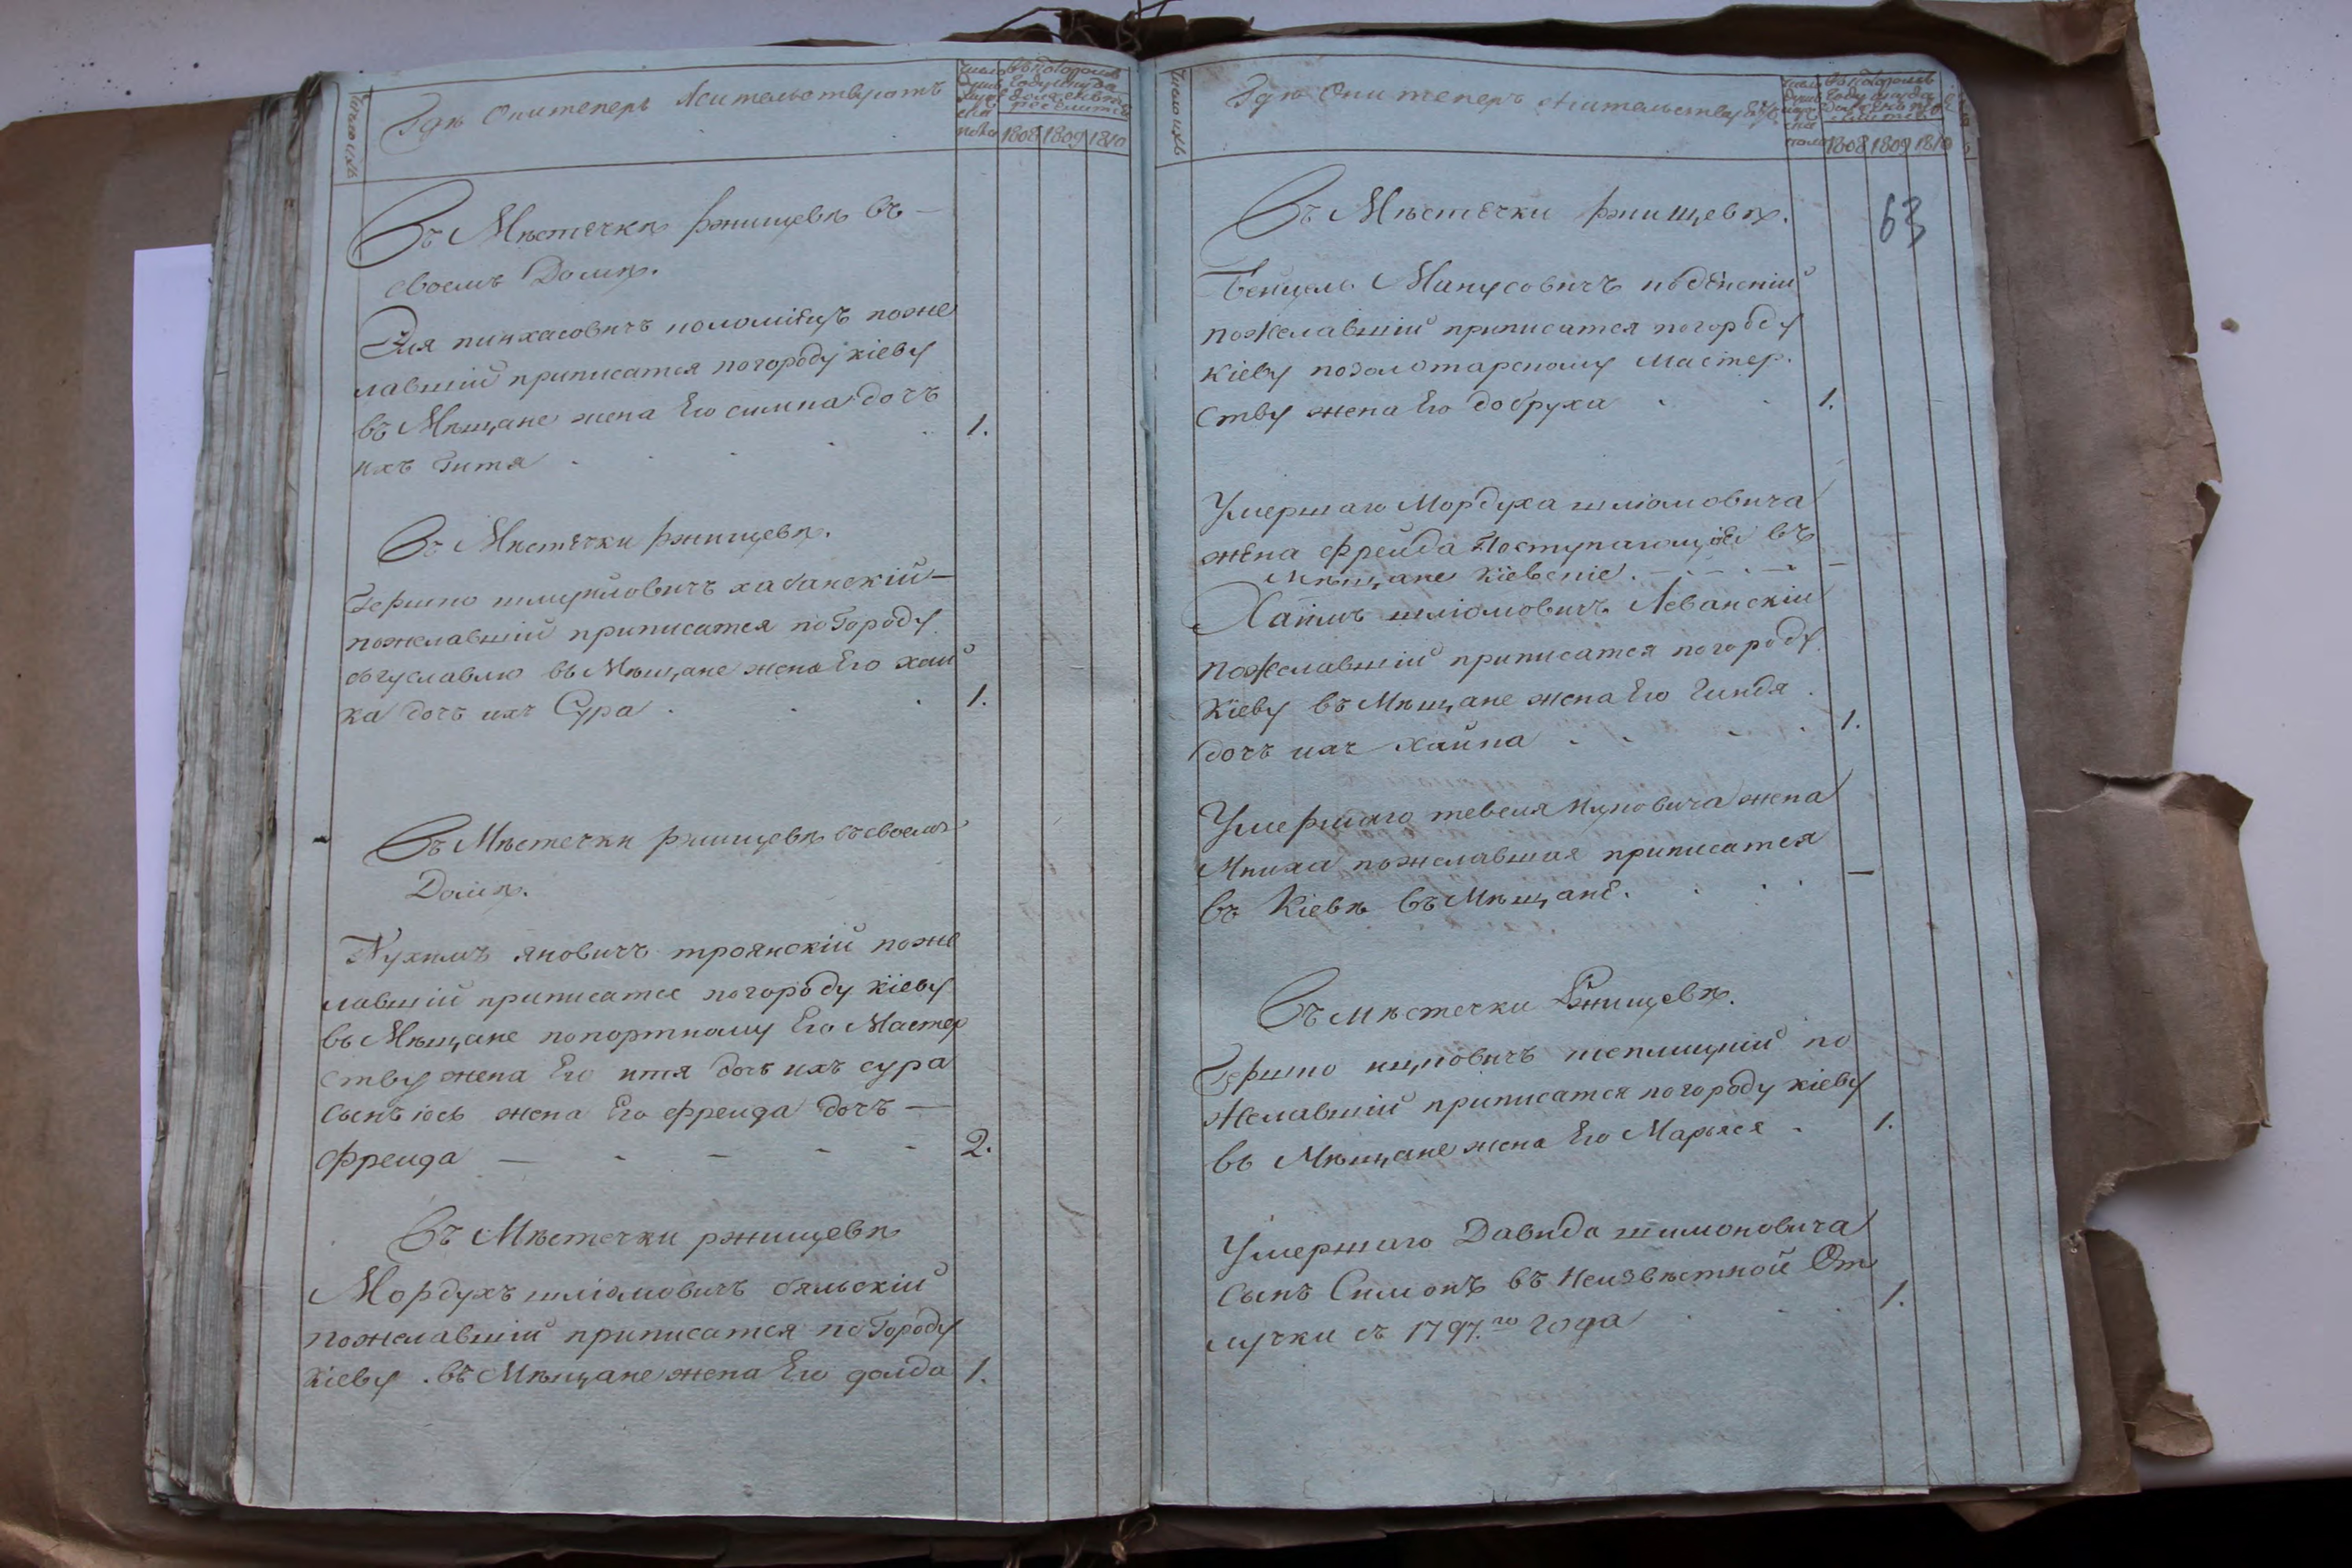 Число ихъ
Гдѣ Они теперь Жительствуютъ
Число душъ мужеска пола
въ которомъ Году и куда должены
1808 1809 1810
Въ Мѣстечкѣ Ржищевѣ въ —
своемъ Домѣ.
Эля пинхасовичъ поже
лавшій приписатся погороду кіеву
въ Мѣщане жена Его симна дочъ
ихъ Гитя 1.
Въ Мѣстечки Ржищевѣ.
Гершко шмуйловичъ хабанскій —
пожелавшій приписатся по Городу
богуславлю въ Мѣщане жена Его хай
ка дочъ ихъ Сура 1.
Въ Мѣстечки ржищевѣ въ своемъ
Домѣ.
Нухимъ яновичъ троянскій поже
лавшій приписатся погороду кіеву
въ Мѣщане попортному Его Мастер
ству жена Его итя дочь ихъ сура
сынъ іось жена Его фрейда дочъ —
фрейда — 2.
Въ Мѣстечки ржищевѣ
Мордухъ шліомовичъ бяльскій
пожелавшій приписатся по Городу
Кіеву въ Мѣщане жена Его 1.
Число ихъ
Гдѣ Они теперъ Жительствуютъ
Число душъ
въ которомъ Году и куда
1808 1809 1810
63
Въ Мѣстечки Ржищевѣ.
Манусовичъ
пожелавшій приписатся погороду
Кіеву позолотарскому мастер.
ству жена Его добруха 1.
Умершаго Мордуха шліомовича
жена фрейда Поступающая въ
Мѣщане Кіевскіе. —
Хаимъ шліомовичъ Леванскій
пожелавшій приписатся погороду
Кіеву въ Мѣщане жена Его Гиндя
дочъ ихъ хайка 1.
Умершаго тевеля ицковича жена
пожелавшая приписатся
въ Кіевѣ въ Мѣщане. —
Въ мѣстечки Ржищевѣ.
Гершко ицковичъ теплицкій по
желавшій приписатся погороду кіеву
въ Мѣщане жена Его Марьяся 1.
Умершаго Давида шимоновича
сынъ Симонъ въ Неизвѣстной От
лучки съ 1797.го года 1.